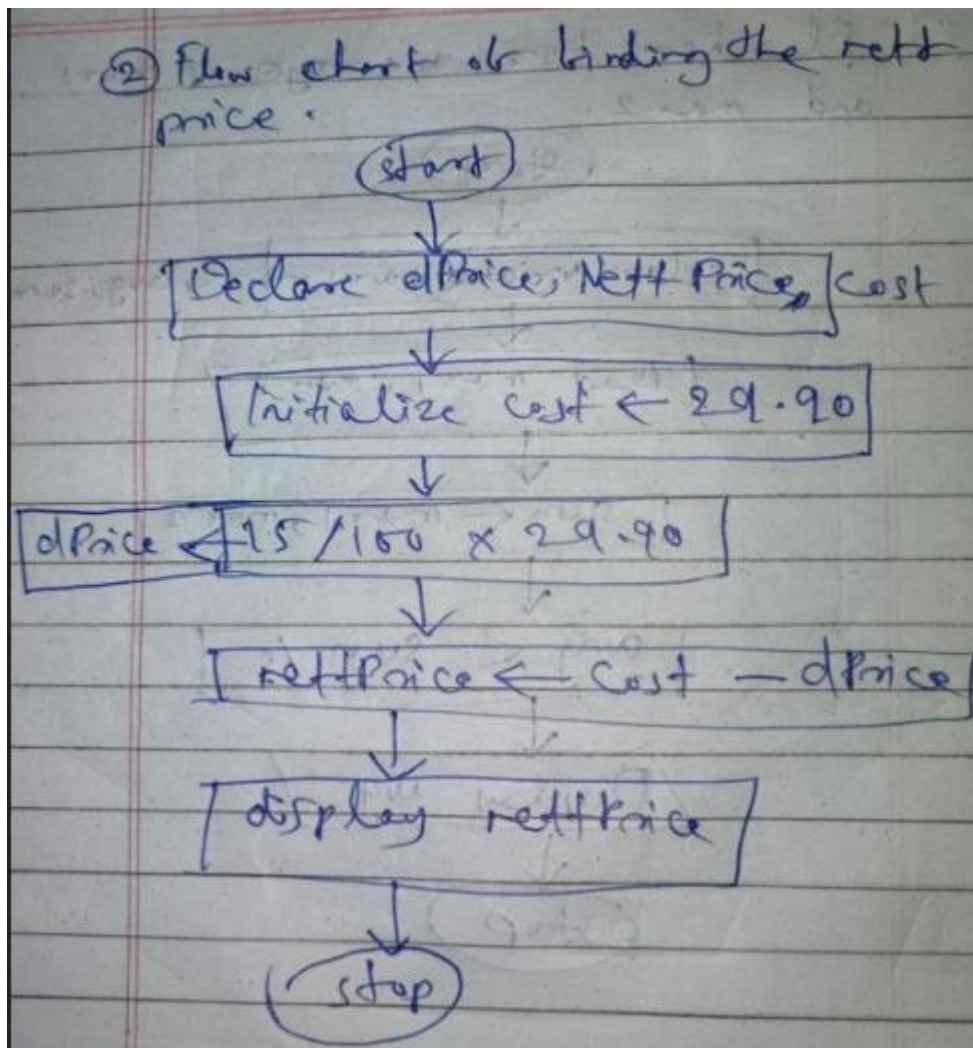 ② Flow chart of finding the nett
price.
start
Declare dPrice, Nett Price, Cost
Initialize cost ← 29.90
dPrice ← 15/100 × 29.90
nettPrice ← Cost – dPrice
display nettPrice
stop